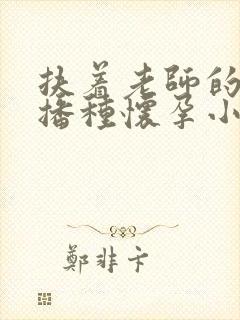 扶着老師的
播種懷孕小
鄭非卞